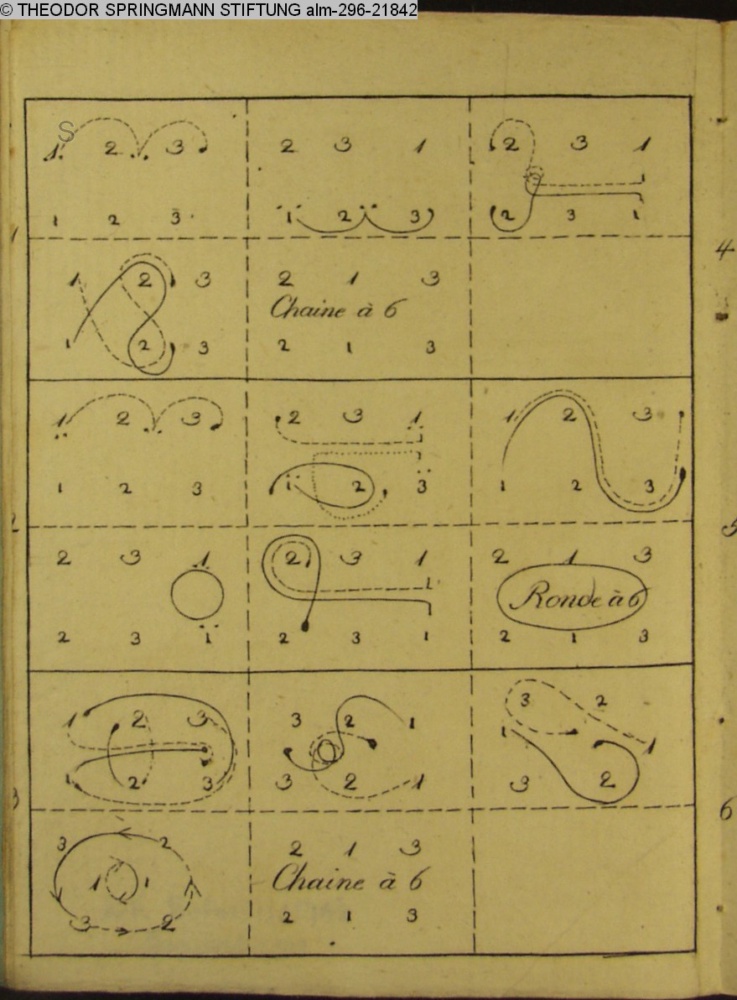 © THEODOR SPRINGMANN STIFTUNG alm-296-21842
S
1 2 3
1 2 3
2 3 1
1 2 3
2 3 1
2 3 1
1
4
1 2 3
1 2 3
2 1 3
Chaine à 6
2 1 3
1 2 3
1 2 3
2 3 1
1 2 3
1 2 3
1 2 3
2
5
2 3 1
2 3 1
2 3 1
2 3 1
2 1 3
Ronde à 6
2 1 3
1 2 3
1 2 3
3 2 1
3 2 1
3 2
1 1
3 2
3
6
3 2
1 1
3 2
2 1 3
Chaine à 6
2 1 3